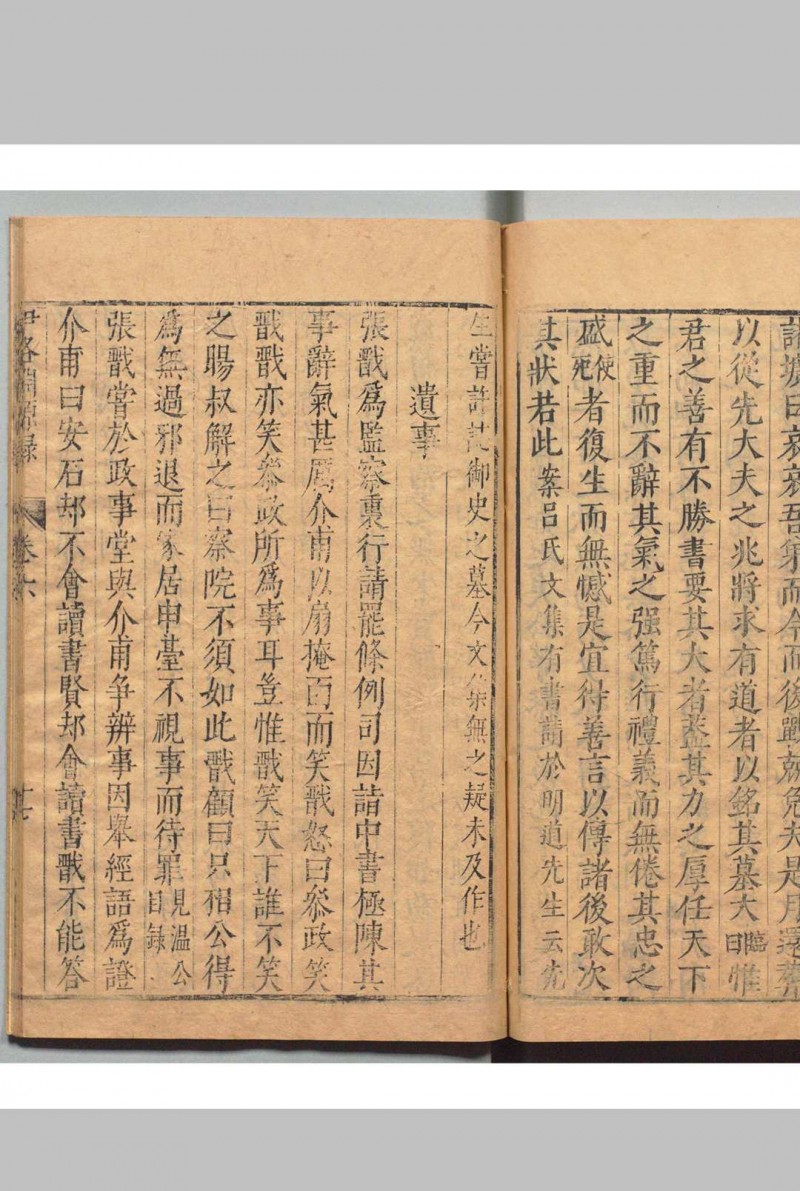 請壙曰哀哀吾弟而今而後戰兢免夫是月還葬
以從先大夫之兆將求有道者以銘其墓大臨曰惟
君之善有不勝書要其大者蓋其力之厚任天下
之重而不辭其氣之强篤行禮義而無倦其忠之
盛使死者復生而無憾是宜得善言以傳諸後敢次
其狀若此案呂氏文集有書請於明道先生云先
生嘗許誌御史之墓今文集無之疑未及作也
遺事
張戬爲監察裏行請罷條例司因詣中書極陳其
事辭氣甚厲介甫以扇掩面而笑戬怒曰叅政笑
戬戬亦笑叅政所爲事耳豈惟戬笑天下誰不笑
之暘叔解之曰察院不須如此戬顧曰只相公得
爲無過邪退而家居申臺不視事而待罪見溫公日錄
張戬嘗於政事堂與介甫爭辨事因舉經語爲證
介甫曰安石却不會讀書賢却會讀書戬不能答
伊洛淵源錄 卷六